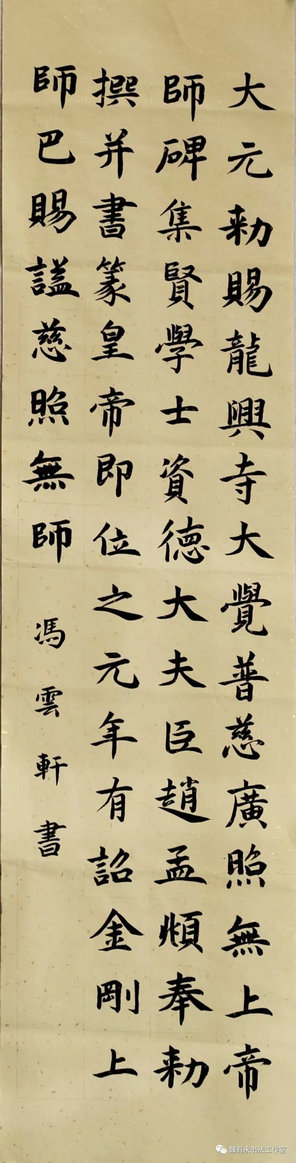 大元勅賜龍興寺大覺普慈廣照無上帝
師碑集賢學士資德大夫臣趙孟頫奉勅
撰并書篆皇帝即位之元年有詔金剛上
師巴賜謚慈照無師
馮雲軒書